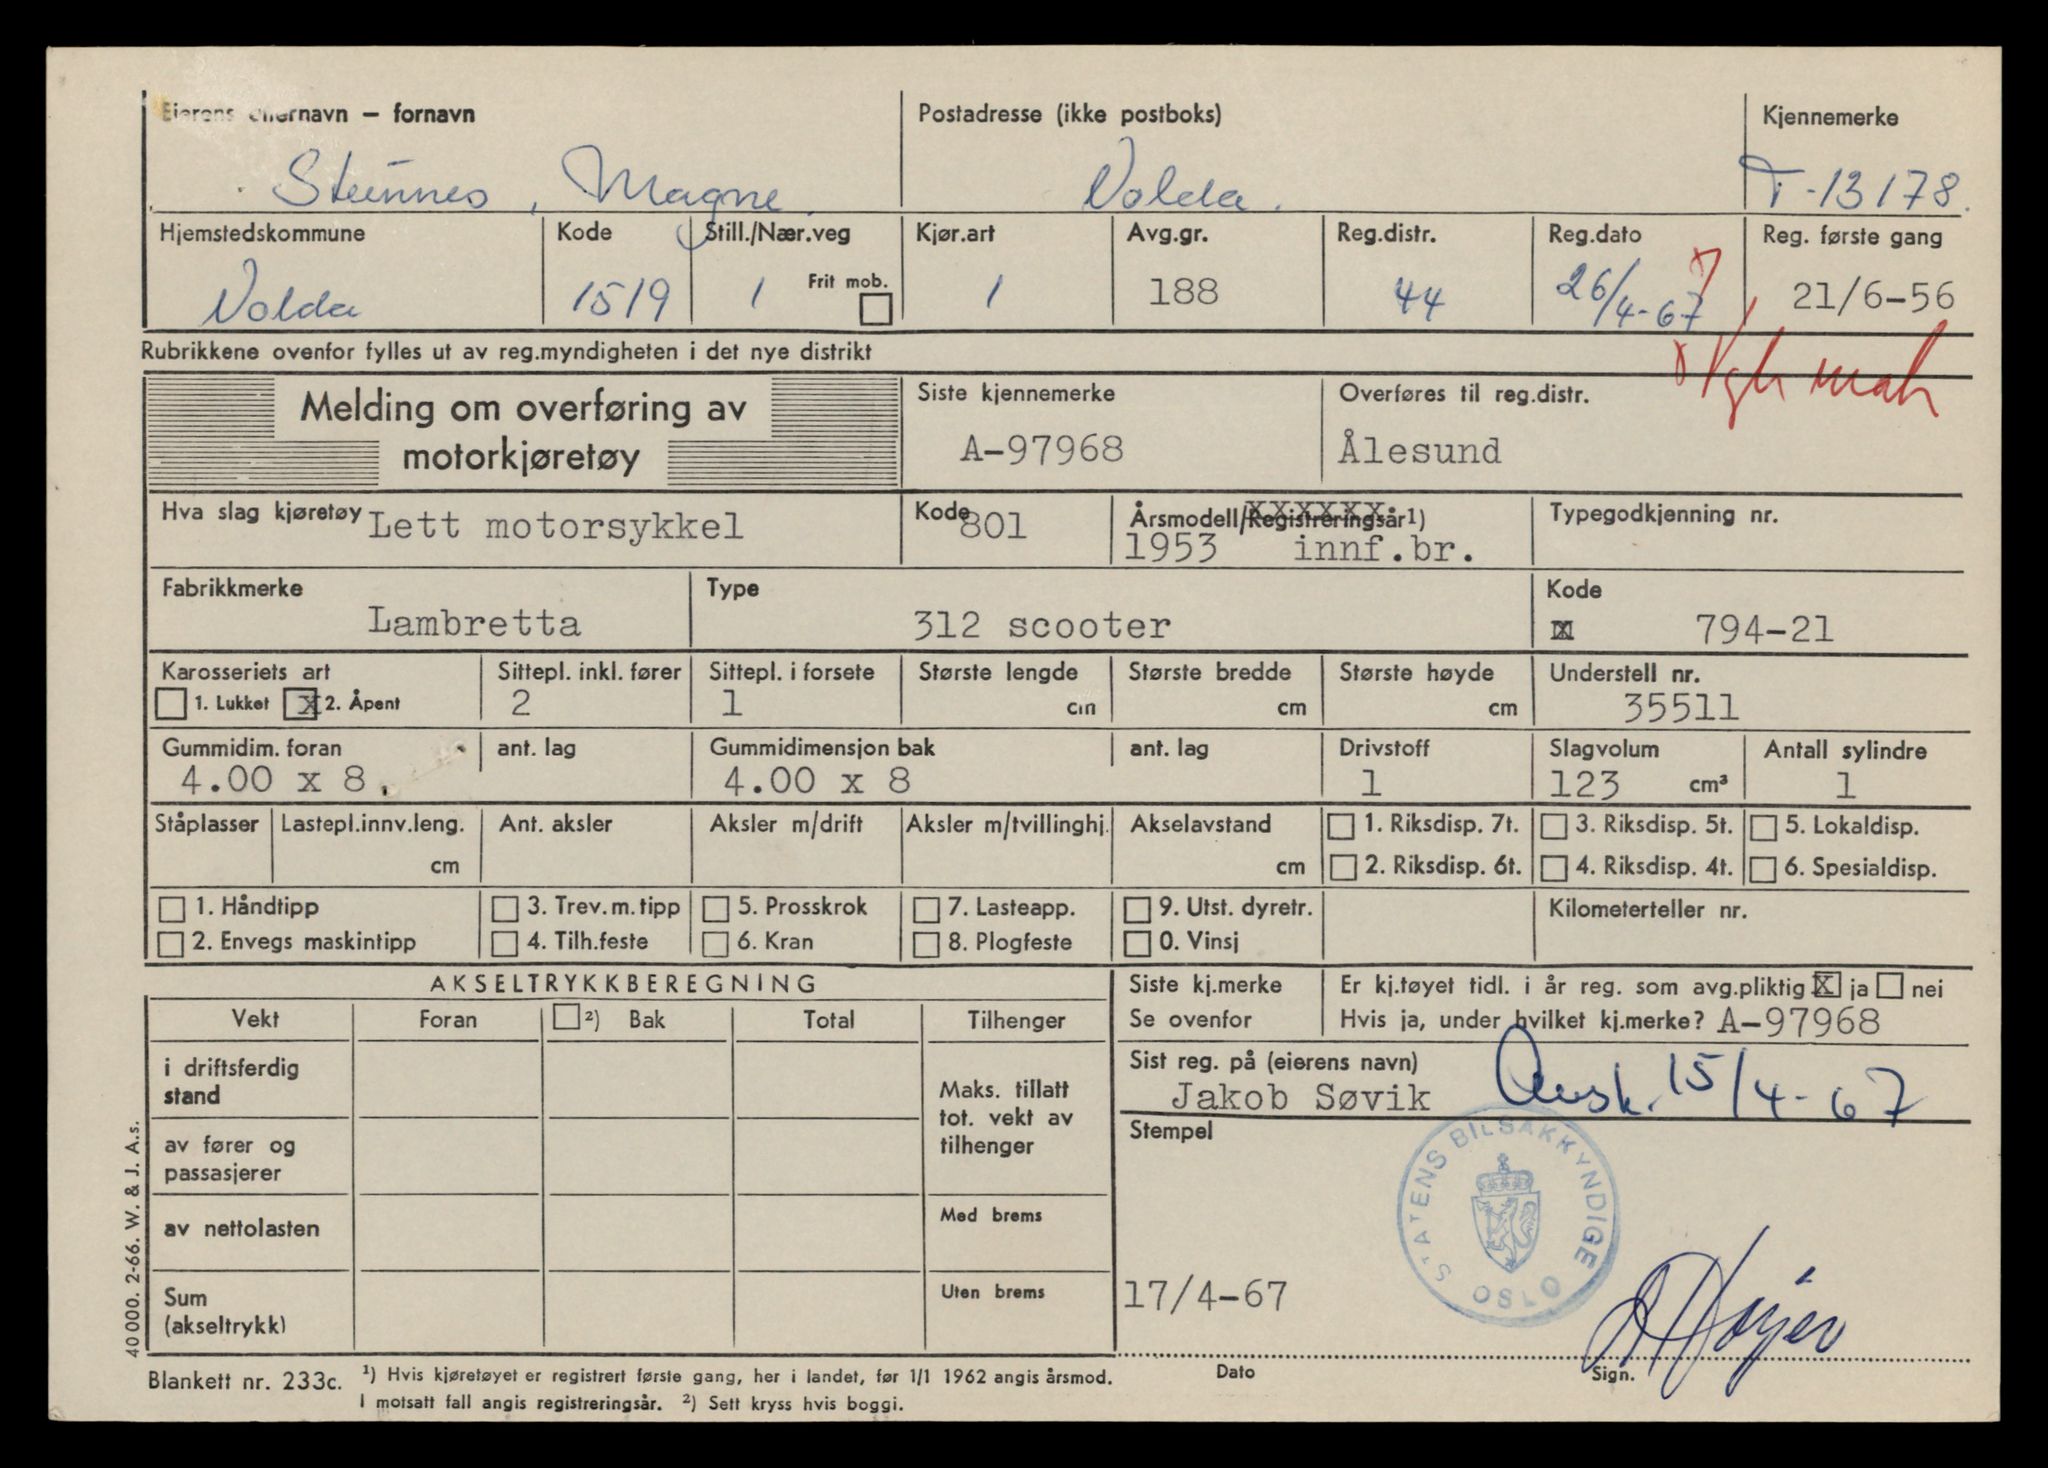 Eierens etternavn – fornavn Postadresse (ikke postboks) Kjennemerke
Steinnes, Magne. Volda. T-13178.
Hjemstedskommune Kode Still./Nær.veg Kjør.art Avg.gr. Reg.distr. Reg.dato Reg. første gang
Volda 1519 1 Frit mob. 1 188 44 26/4-67 21/6-56
Rubrikkene ovenfor fylles ut av reg.myndigheten i det nye distrikt
Melding om overføring av
motorkjøretøy
Siste kjennemerke Overføres til reg.distr.
A-97968 Ålesund
Hva slag kjøretøy Lett motorsykkel Kode 801 Årsmodell/Registreringsår1) Typegodkjenning nr.
1953 innf.br.
Fabrikkmerke Type Kode
Lambretta 312 scooter 794-21
Karosseriets art Sittepl. inkl. fører Sittepl. i forsete Største lengde Største bredde Største høyde Understell nr.
1. Lukket X 2. Åpent 2 1 cm cm cm 35511
Gummidim. foran ant. lag Gummidimensjon bak ant. lag Drivstoff Slagvolum Antall sylindre
4.00 x 8. 4.00 x 8 1 123 cm³ 1
Ståplasser Lastepl.innv.leng. Ant. aksler Aksler m/drift Aksler m/tvillinghj. Akselavstand 1. Riksdisp. 7t. 3. Riksdisp. 5t. 5. Lokaldisp.
cm cm 2. Riksdisp. 6t. 4. Riksdisp. 4t. 6. Spesialdisp.
1. Håndtipp 3. Trev.m.tipp 5. Prosskrok 7. Lasteapp. 9. Utst. dyretr. Kilometerteller nr.
2. Envegs maskintipp 4. Tilh.feste 6. Kran 8. Plogfeste 0. Vinsj
AKSELTRYKKBEREGNING Siste kj.merke Er kj.tøyet tidl. i år reg. som avg.pliktig X ja nei
Vekt Foran 2) Bak Total Tilhenger Se ovenfor Hvis ja, under hvilket kj.merke? A-97968
i driftsferdig
stand
Maks. tillatt
tot. vekt av
tilhenger
Sist reg. på (eierens navn)
Jakob Søvik Avsk. 15/4-67
av fører og
passasjerer
Stempel
STATENS BILSAKKYNDIGE OSLO
av nettolasten Med brems
Sum
(akseltrykk)
Uten brems 17/4-67
Dato Sign.
40 000. 2-66. W. & J. A.s.
Blankett nr. 233c. 1) Hvis kjøretøyet er registrert første gang, her i landet, før 1/1 1962 angis årsmod.
I motsatt fall angis registreringsår. 2) Sett kryss hvis boggi.